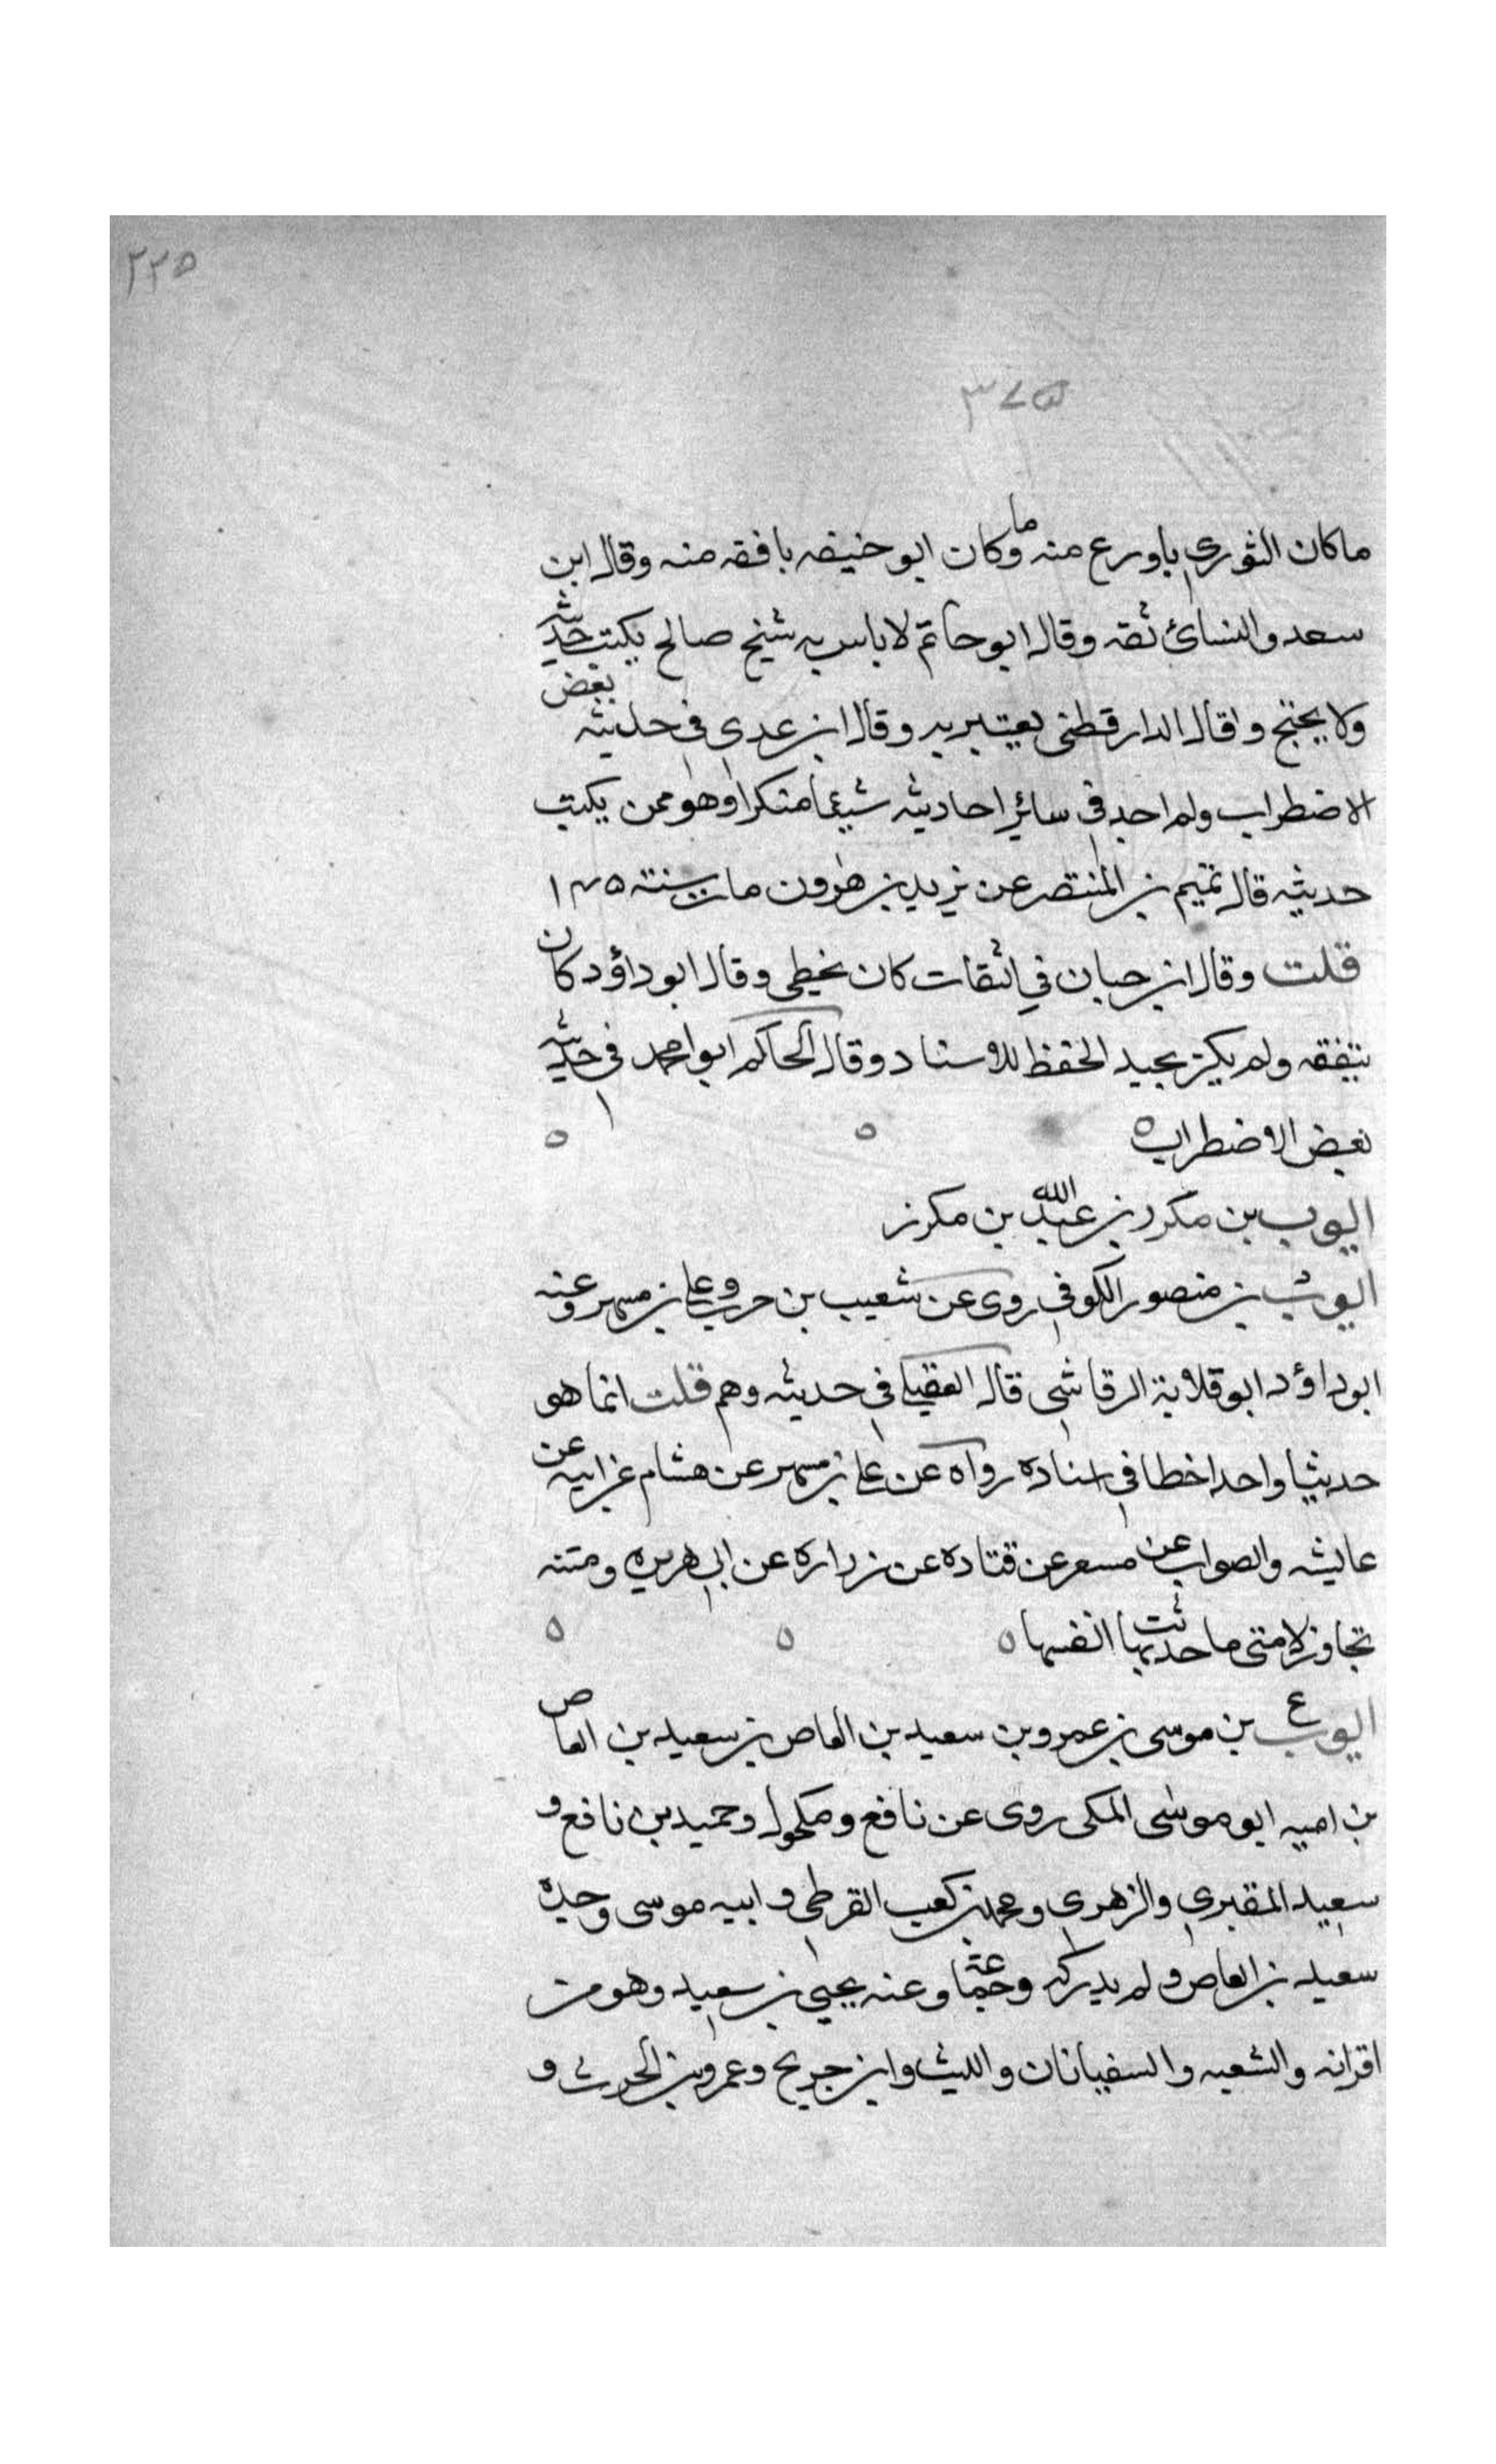 ٢٢٥
٣٤٥
ماكان الثوري باورع منه وما كان ابو حنيفه بافقه منه وقال ابن
سعد والنسائ ثقه وقال ابو حاتم لا باس به شيخ صالح يكتب حديثه
ولا يحتج و قال الدارقطنى يعتبر به وقال ابن عدى في حديثه بعض
الاضطراب ولم اجد في سائر احاديثه شيئا منكرا وهو ممن يكتب
حديثه قال تميم بن المنتصر عن يزيد بن هرون مات سنة ١٤٥
قلت وقال ابن حبان في الثقات كان يخطى وقال ابو داؤد كان
يتفقه ولم يكن بجيد الحفظ للاسناد وقال الحاكم ابو احمد في حديثه
بعض الاضطراب ٥ ٥ ٥
ايوب بن مكرز بن عبد الله بن مكرز
ايوب بن منصور الكوفي روى عن شعيب بن حرب وعلي بن مسهر وعنه
ابو داؤد ابو قلابة الرقاشى قال العقيلي في حديثه وهم قلت انما هو
حديثا واحدا خطا في اسناده رواه عن علي بن مسهر عن هشام عن ابيه عن
عايشه والصواب عن مسعر عن قتاده عن زراره عن ابي هريره ومتنه
تجاوز لامتى ما حدثت بها انفسها ٥ ٥ ٥
ايوب ع بن موسى بن عمرو بن سعيد بن العاص بن سعيد بن العاص
بن اميه ابو موسى المكى روى عن نافع ومكحول وحميد بن نافع و
سعيد المقبري والزهرى ومحمد بن كعب القرظى و ابيه موسى وجده
سعيد بن العاص ولم يدركه وجماعة وعنه يحيى بن سعيد وهو من
اقرانه والشعبه والسفيانان والليث وابن جريج وعمرو بن الحرث و